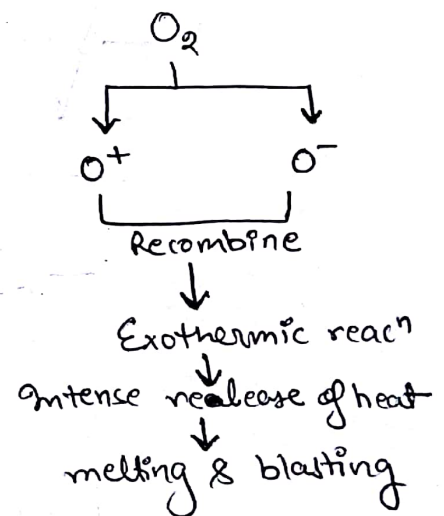 O₂
O⁺ O⁻
Recombine
Exothermic reacⁿ
Intense realease of heat
melting & blasting